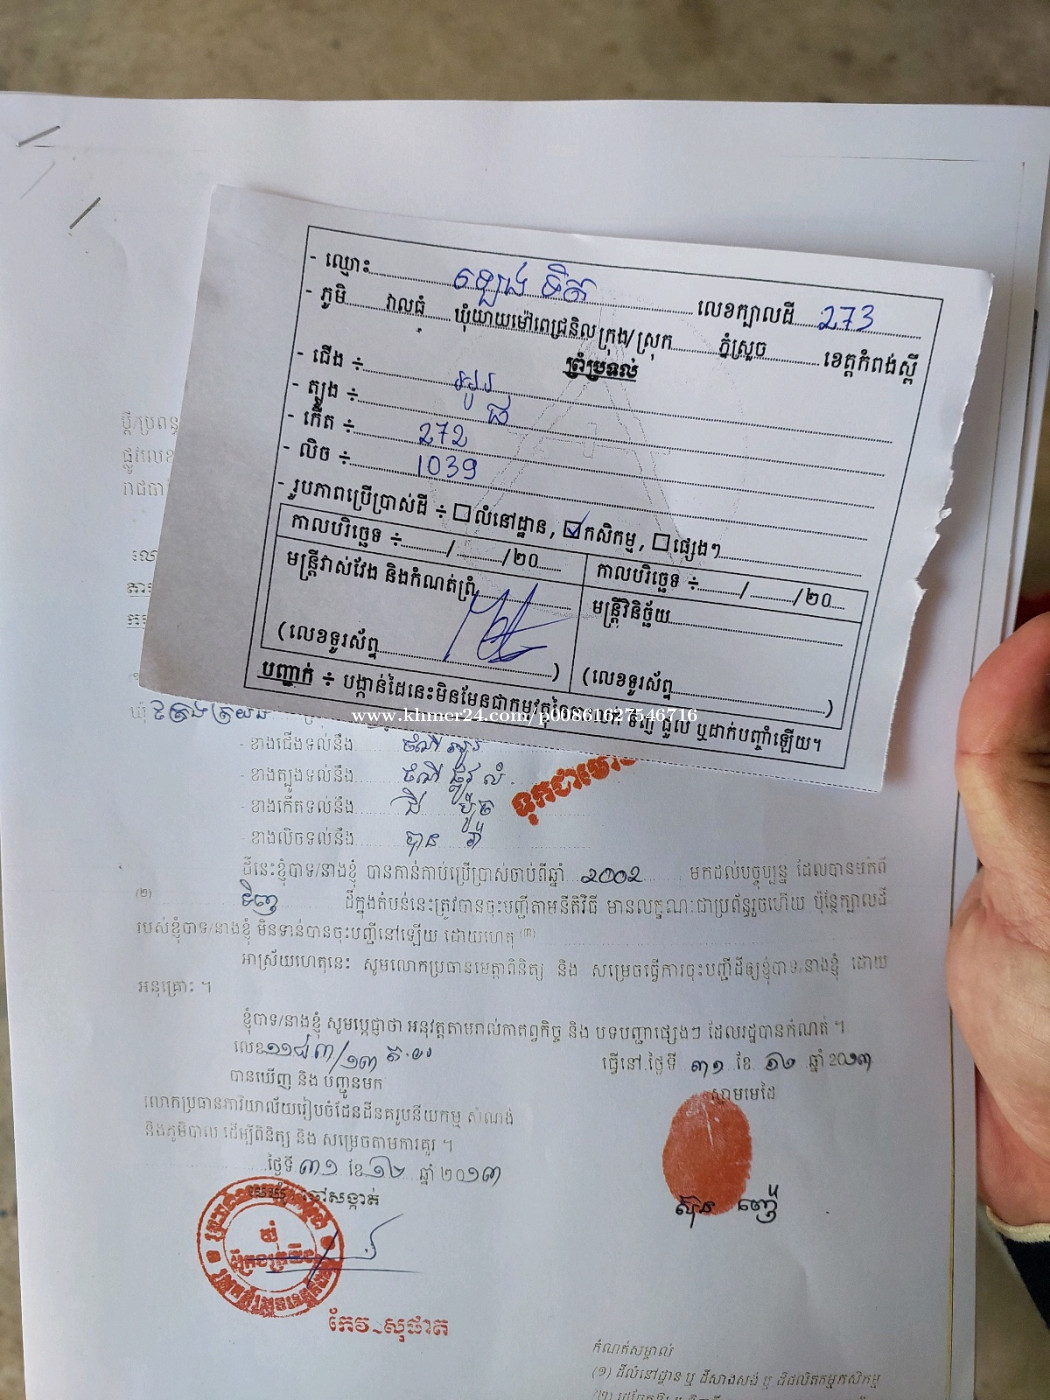 - ឈ្មោះ ឡេង ទិត លេខក្បាលដី 273
- ភូមិ វាលធំ ឃុំយាយម៉ៅពេជ្រនិល ក្រុង/ស្រុក ភ្នំស្រួច ខេត្តកំពង់ស្ពឺ
ព្រំប្រទល់
- ជើង ÷ អូរ
- ត្បូង ÷ ផ
- កើត ÷ 272
- លិច ÷ 1039
- រូបភាពប្រើប្រាស់ដី ÷ លំនៅដ្ឋាន, កសិកម្ម, ផ្សេងៗ
កាលបរិច្ឆេទ ÷ / /២០
កាលបរិច្ឆេទ ÷ / /២០
មន្ត្រីវាស់វែង និងកំណត់ព្រំ
មន្ត្រីវិនិច្ឆ័យ
(លេខទូរស័ព្ទ )
(លេខទូរស័ព្ទ )
បញ្ជាក់ ÷ បង្កាន់ដៃនេះមិនមែនជាកម្មវត្ថុនៃការលក់ ទិញ ជួល ឬដាក់បញ្ចាំឡើយ។
www.khmer24.com/p00861627546716
ប្តី/ប្រពន្ធ
ផ្លូវលេខ
រាជធានី
ឃុំ
- ខាងជើងទល់នឹង ចំណី អូរ
- ខាងត្បូងទល់នឹង ចំណី ផ្លូវ លំ
- ខាងកើតទល់នឹង ដី ប៉ូច
- ខាងលិចទល់នឹង បាន វ៉ា
ទុកជាមោឃៈ
ដីនេះខ្ញុំបាទ/នាងខ្ញុំ បានកាន់កាប់ប្រើប្រាស់ចាប់ពីឆ្នាំ 2002 មកដល់បច្ចុប្បន្ន ដែលបានមកពី
(២) ទិញ ដីក្នុងតំបន់នេះត្រូវបានចុះបញ្ជីតាមនីតិវិធី មានលក្ខណៈជាប្រព័ន្ធរួចហើយ ប៉ុន្តែក្បាលដី
របស់ខ្ញុំបាទ/នាងខ្ញុំ មិនទាន់បានចុះបញ្ជីនៅឡើយ ដោយហេតុ (៣)
អាស្រ័យហេតុនេះ សូមលោកប្រធានមេត្តាពិនិត្យ និង សម្រេចធ្វើការចុះបញ្ជីដីឲ្យខ្ញុំបាទ/នាងខ្ញុំ ដោយ
អនុគ្រោះ ។
ខ្ញុំបាទ/នាងខ្ញុំ សូមប្តេជ្ញាថា អនុវត្តតាមរាល់កាតព្វកិច្ច និង បទបញ្ជាផ្សេងៗ ដែលរដ្ឋបានកំណត់ ។
លេខ ១១៨៣/១៣
ធ្វើនៅ ថ្ងៃទី ៣១ ខែ ១២ ឆ្នាំ 20១៣
បានឃើញ និង បញ្ជូនមក
ស្នាមមេដៃ
លោកប្រធានការិយាល័យរៀបចំដែនដីនគរូបនីយកម្ម សំណង់
និងភូមិបាល ដើម្បីពិនិត្យ និង សម្រេចតាមការគួរ ។
ថ្ងៃទី ៣១ ខែ ១២ ឆ្នាំ 20១៣
ចៅសង្កាត់
ស៊ុន ញ៉េ
កែវ-សុផាត
កំណត់សម្គាល់
(១) ដីលំនៅដ្ឋាន ឬ ដីសាងសង់ ឬ ដីផលិតកម្មកសិកម្ម